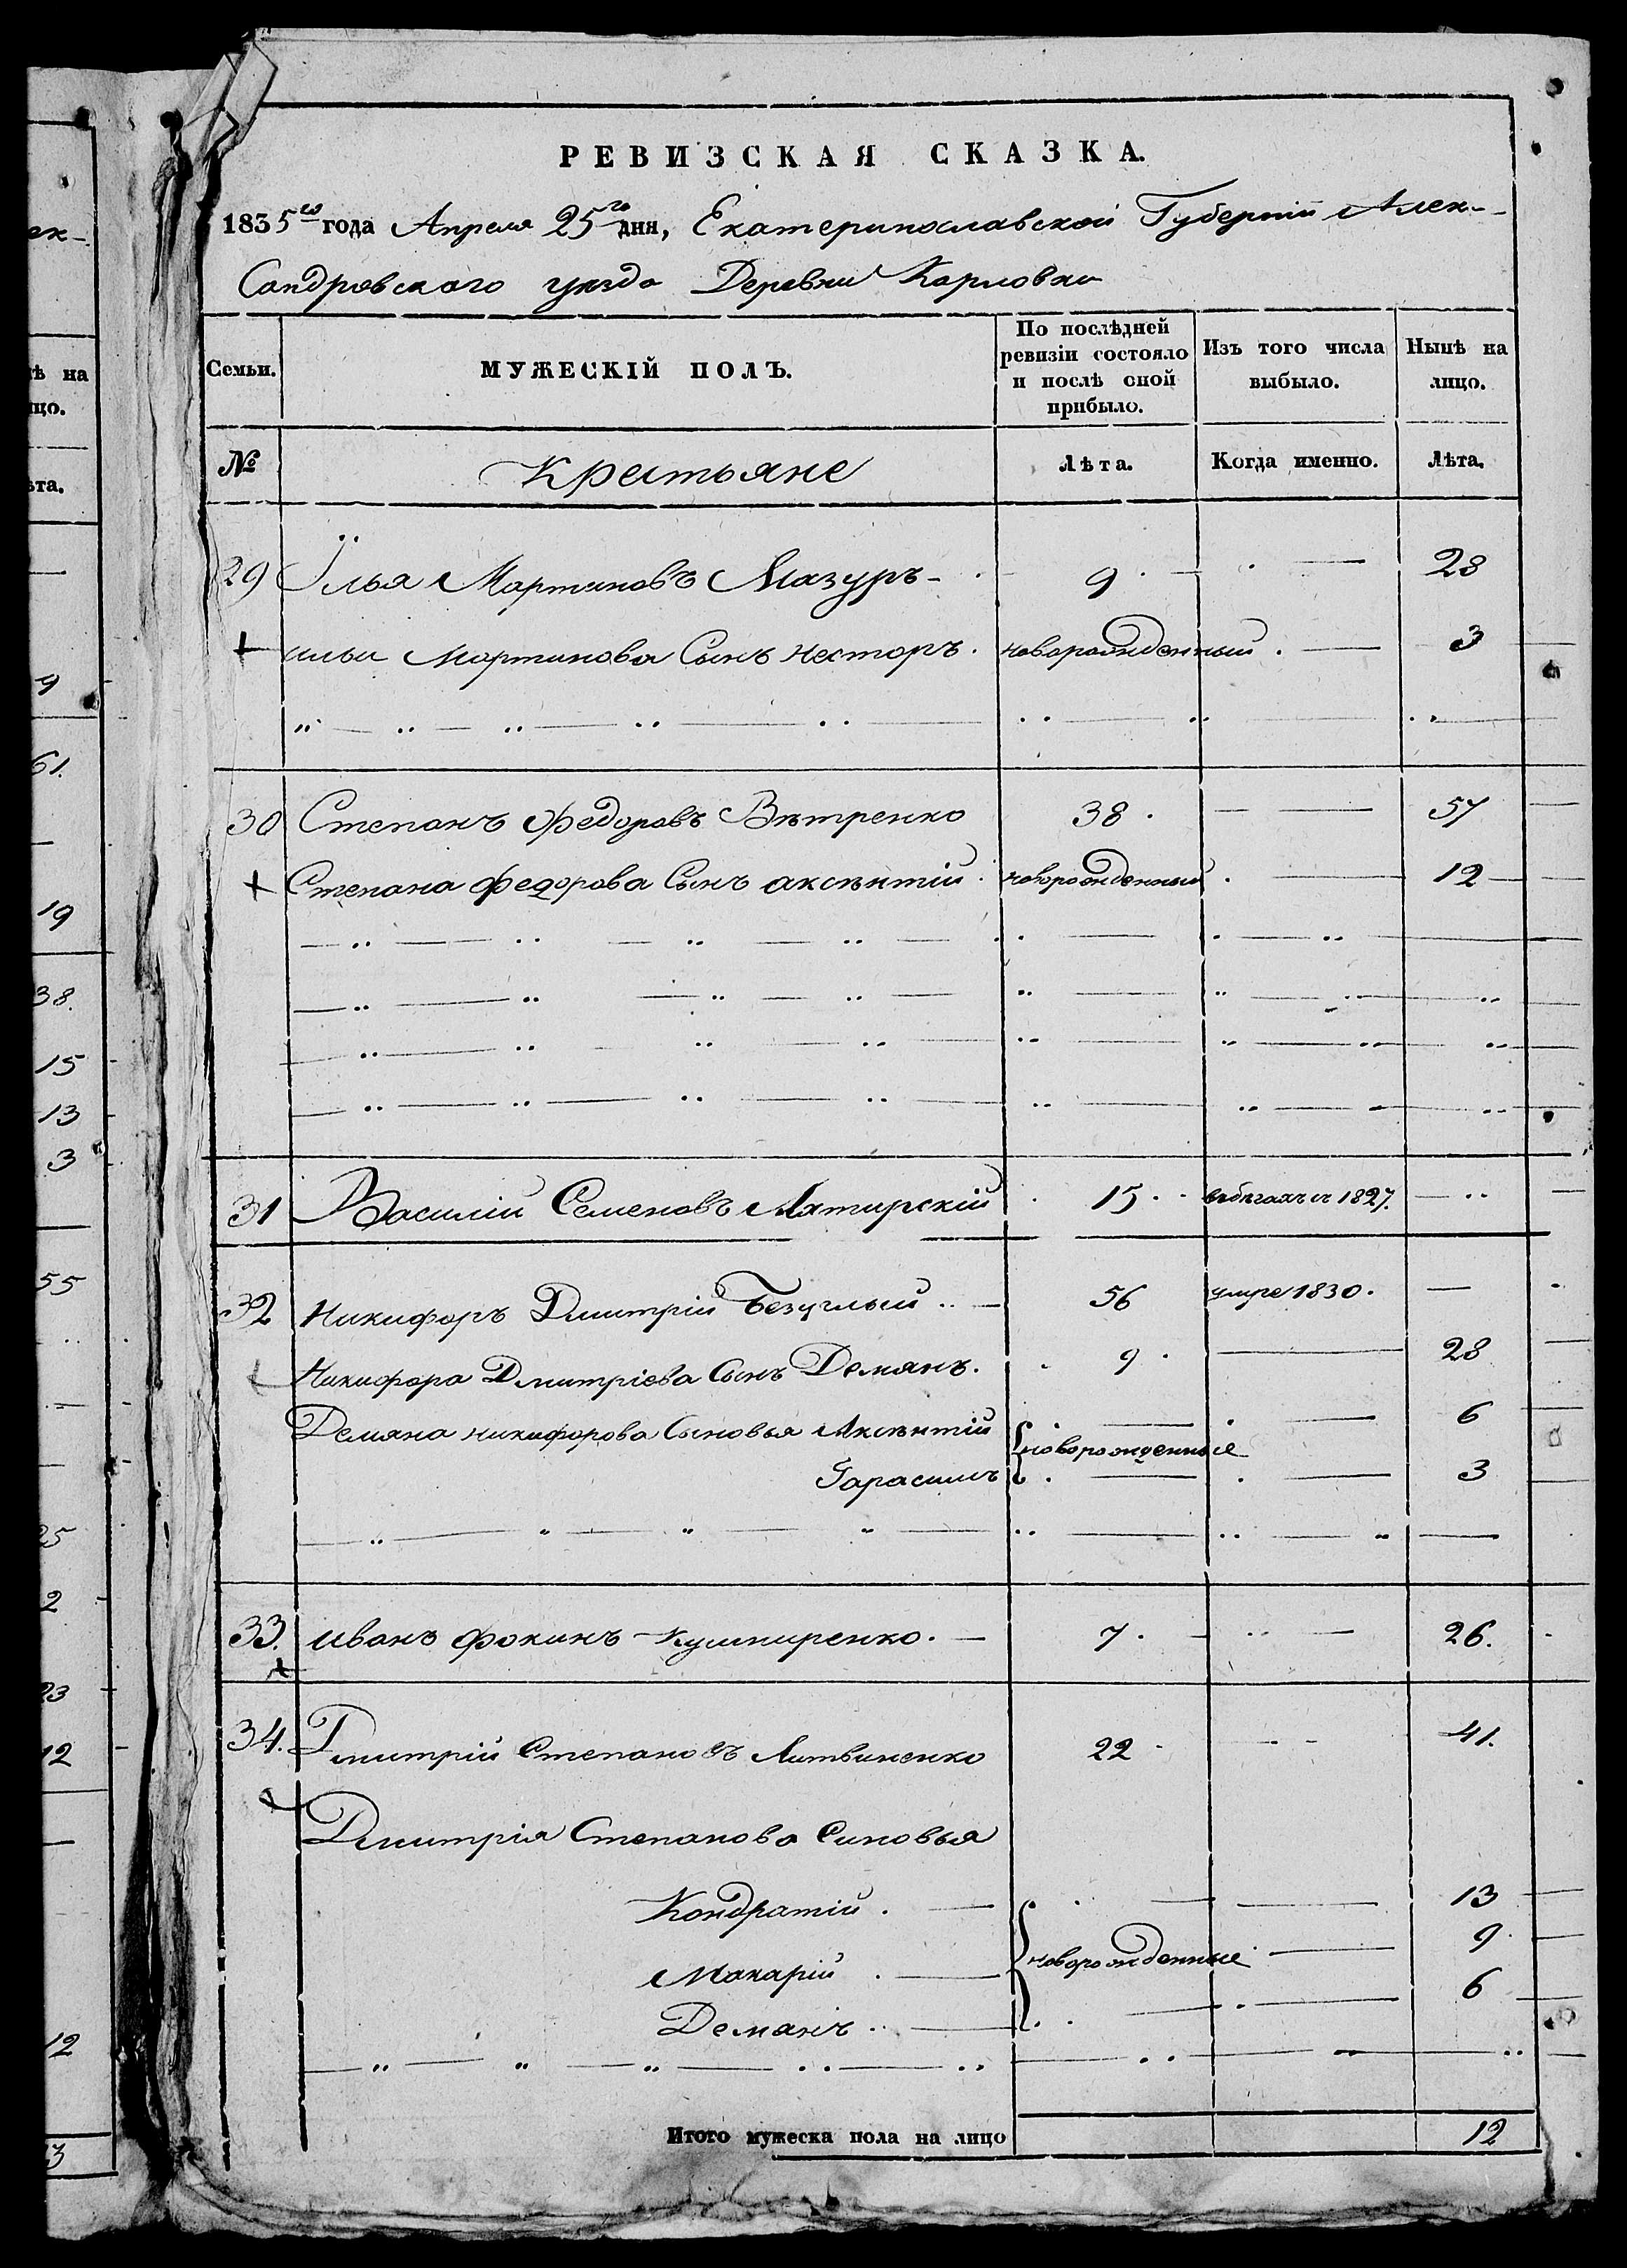 РЕВИЗСКАЯ СКАЗКА.
1835го года Апреля 25го дня, Екатеринославской Губернии Алек-
сандровского уезда Деревни Карловки
Семьи. МУЖЕСКІЙ ПОЛЪ. По послѣдней ревизіи состояло и послѣ оной прибыло. Изъ того числа выбыло. Нынѣ на лицо.
№ Крестьяне Лѣта. Когда именно. Лѣта.
29 Илья Мартиновъ Мазуръ 9 28
Ильи Мартинова Сынъ Несторъ новорожденный 3
30 Степанъ Федоровъ Вѣтренко 38 57
Степана Федорова Сынъ Аксентій новорожденный 12
31 Василій Семеновъ 15 въ бегахъ съ 1827.
32 Никифоръ Дмитрій Безуглый 56 умре 1830.
Никифора Дмитріева Сынъ Демянъ. 9 28
Демяна Никифорова Сыновья Аксентій новорожденные 6
Гарасимъ 3
33. Иванъ Фокинъ Кушниренко. 7 26.
34. Дмитрій Степановъ Литвиненко 22 41.
Дмитрія Степанова Синовья
Кондратій 13
Макарій новорожденные 9
Демянъ 6
Итого мужеска пола на лицо 12
ек-
ѣ на
цо.
ѣта.
9
61.
19
38.
15
13
3
55
25
2
23
12
12
3